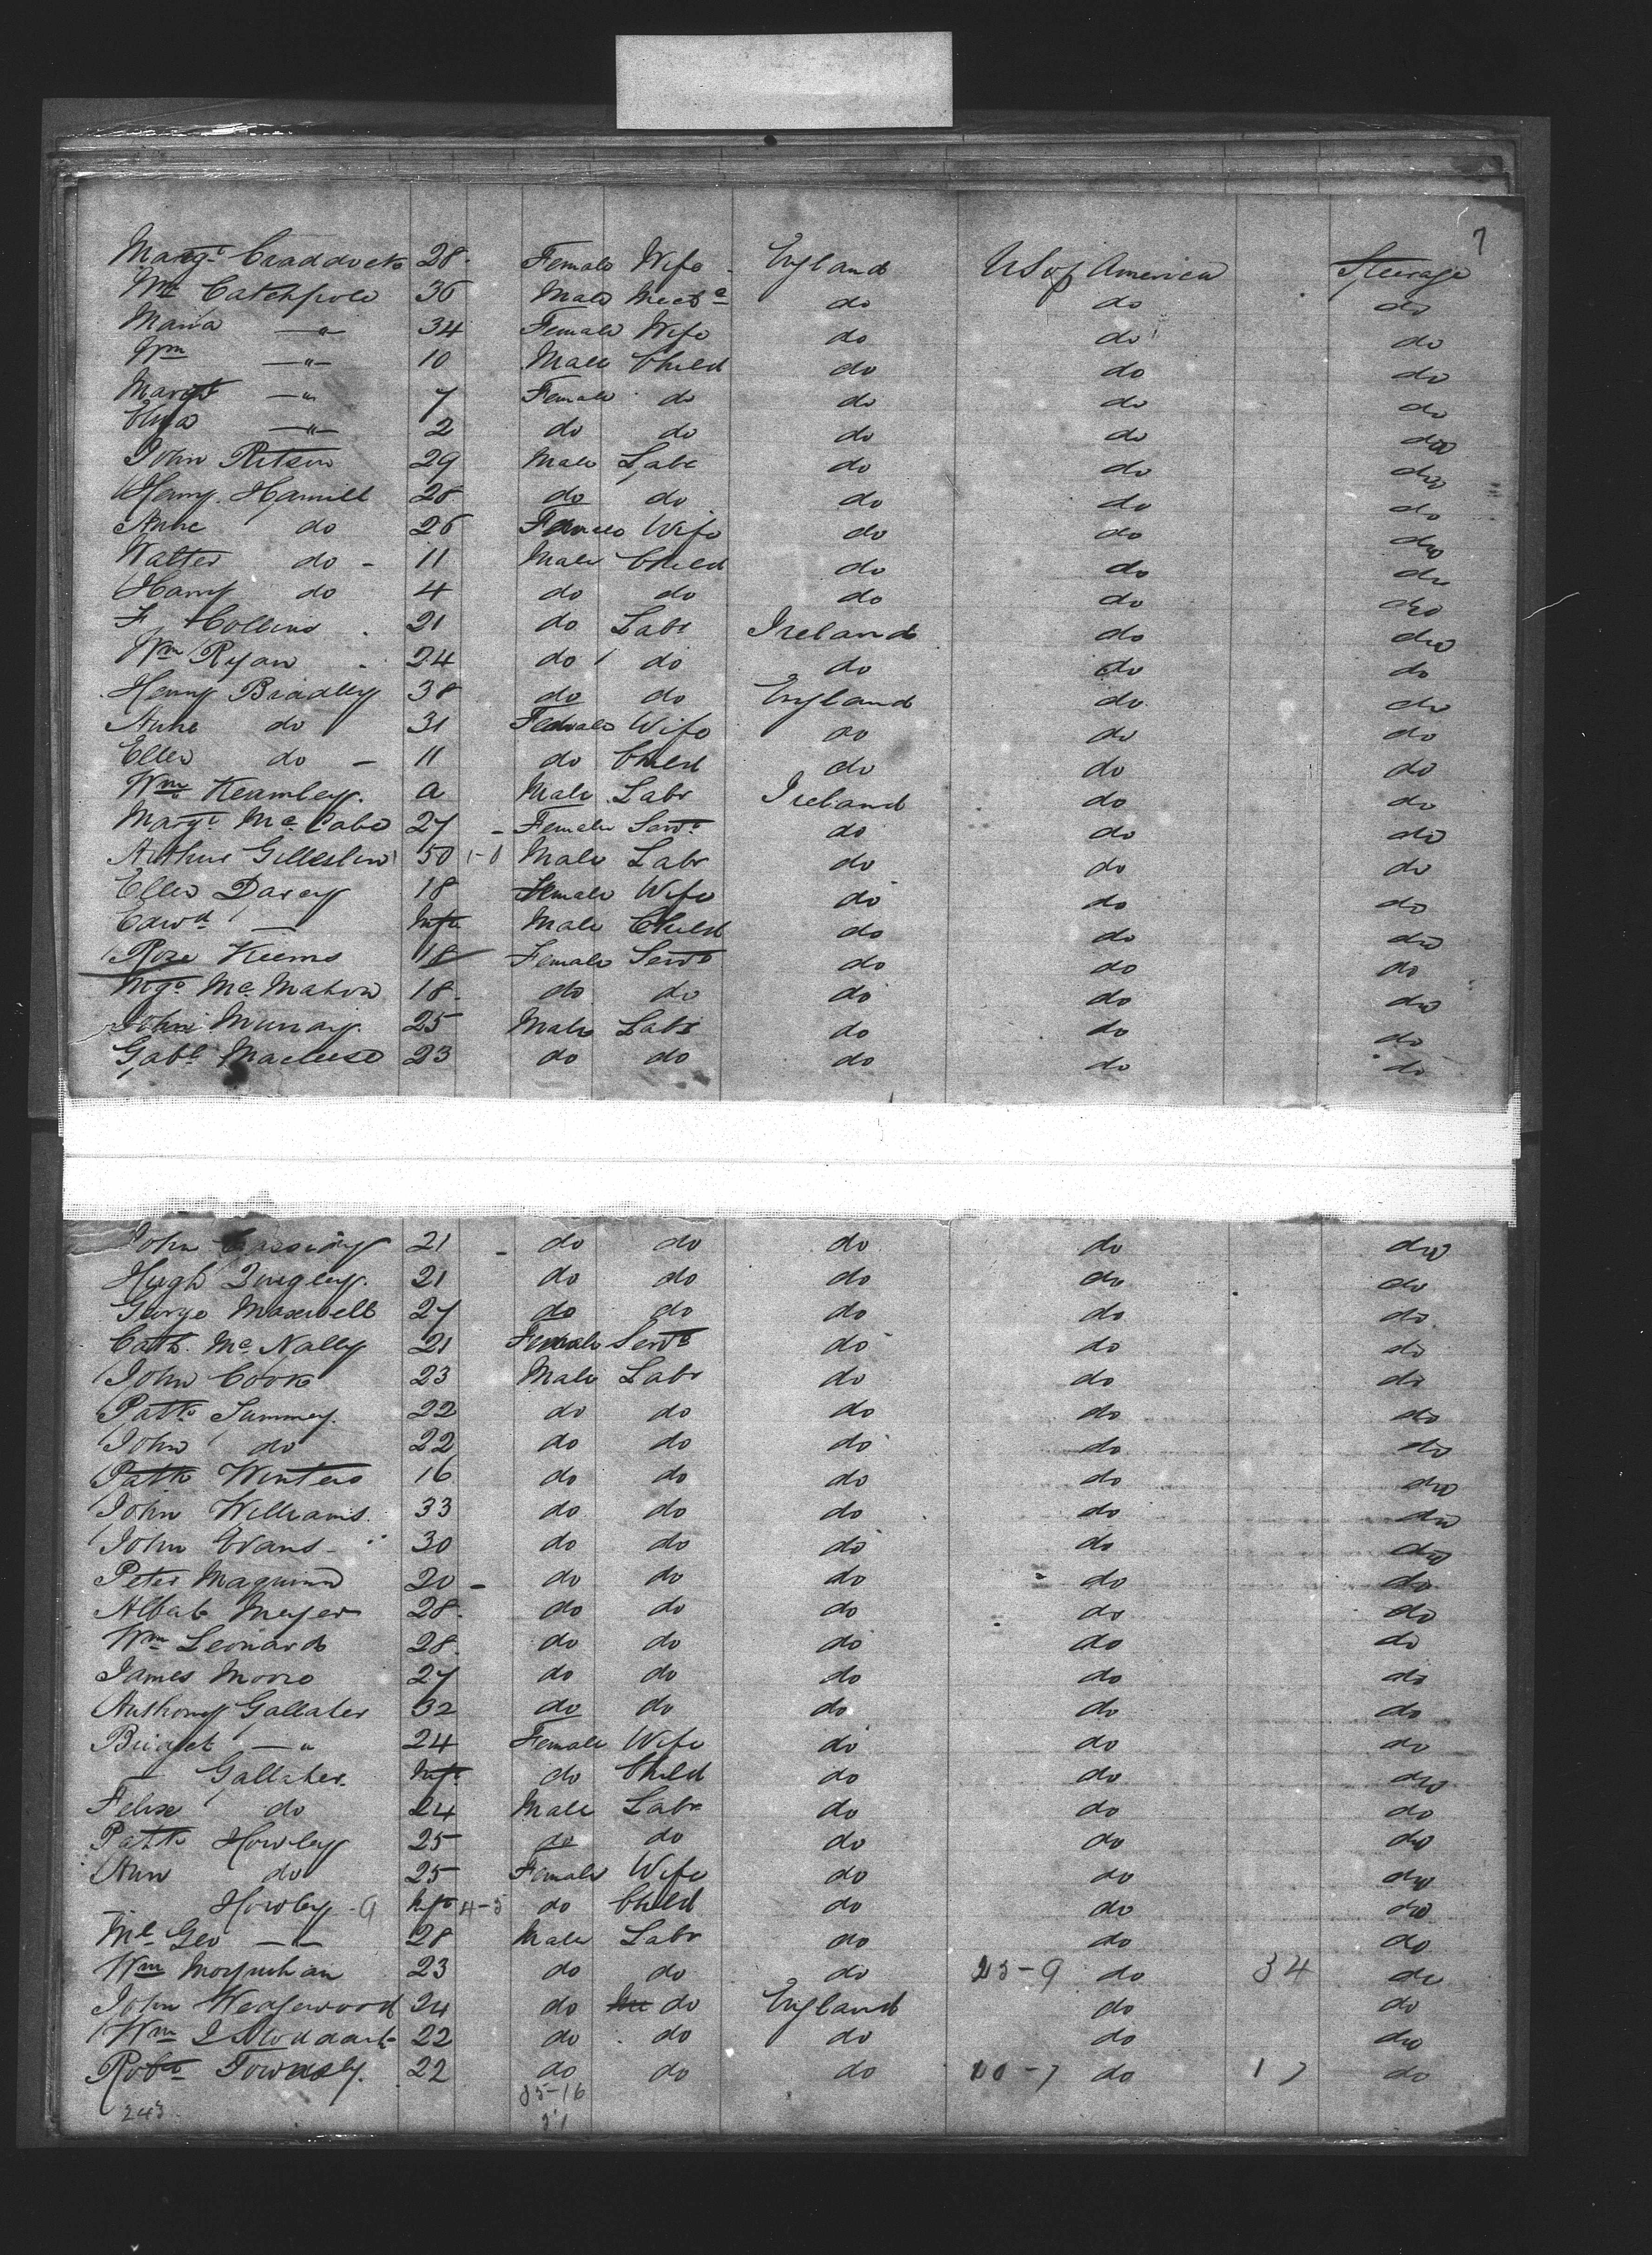 7
Margt Craddock 28 Female Wife England US of America Steerage
Wm Catchpole 36 Male Mechc do do do
Maria " 34 Female Wife do do do
Wm " 10 Male Child do do do
Margt " 7 Female do do do do
Eliza " 2 do do do do do
John Ritson 29 Male Labr do do do
Henry Hamill 28 do do do do do
Anne do 26 Female Wife do do do
Walter do - 11 Male Child do do do
Harry do 4 do do do do do
F Collins 21 do Labr Ireland do do
Wm Ryan 24 do do do do do
Henry Bradley 38 do do England do do
Anne do 31 Female Wife do do do
Ellen do - 11 do Child do do do
Wm Kearnley a Male Labr Ireland do do
Margt Mc Cabe 27 - Female Servt do do do
Arthur 50 1-0 Male Labr do do do
Ellen Darcy 18 Female Wife do do do
Edwd — Inft Male Child do do do
Rose Keems 18 Female Servt do do do
Mgt Mc Mahon 18 do do do do do
John Murray 25 Male Labr do do do
Gabl 23 do do do do do
John Cassidy 21 - do do do do do
Hugh Quigley 21 do do do do do
George Maxwell 27 do do do do do
Cath. Mc Nally 21 Female Servt do do do
John Cook 23 Male Labr do do do
Patk Summey 22 do do do do do
John do 22 do do do do do
Patk Winters 16 do do do do do
John Williams 33 do do do do do
John Evans 30 do do do do do
Peter Maguinn 20 - do do do do do
Albert Meyer 28 do do do do do
Wm Leonard 28 do do do do do
James Moore 27 do do do do do
Anthony Gallaher 32 do do do do do
Bridget — " 24 Female Wife do do do
— Gallaher Inft do Child do do do
Felix do 24 Male Labr do do do
Patk Howley 25 do do do do do
Ann do 25 Female Wife do do do
— Howley 9 Inft 4-5 do Child do do do
Ml Geo — 28 Male Labr do do do
Wm Moynihan 23 do do do 25-9 do 34 do
John Wedgewood 24 do do England do do
Wm Stoddart 22 do do do do do
Robt Townsly 22 do do do 10-7 do 17 do
243 85-16